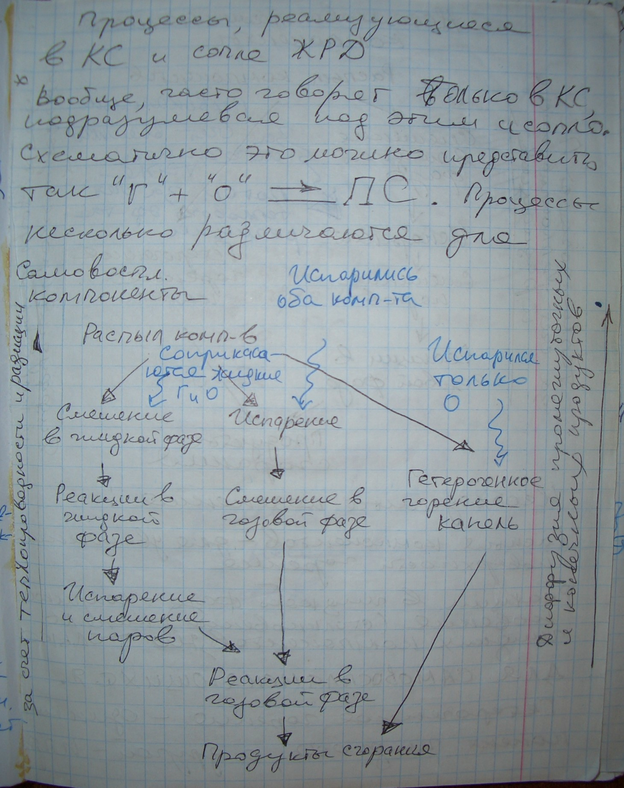 Процессы, реализующиеся
в КС и сопле ЖРД
Вообще, часто говорят только в КС,
подразумевая под этим и сопло.
Схематично это можно представить
так "Г" + "О" ⟹ ПС. Процессы
несколько различаются для
Самовоспл.
компоненты
Испарились
оба комп-та
Распыл комп-в
Соприкаса-
ются жидкие
Г и О
Испарился
только
О
Смешение
в жидкой фазе
Испарение
Гетерогенное
горение
капель
Реакции в
жидкой
фазе
Смешение в
газовой фазе
Испарение
и смешение
паров
Реакции в
газовой фазе
Продукты сгорания
за счет теплопроводности и радиации
Диффузия промежуточных
и конечных продуктов